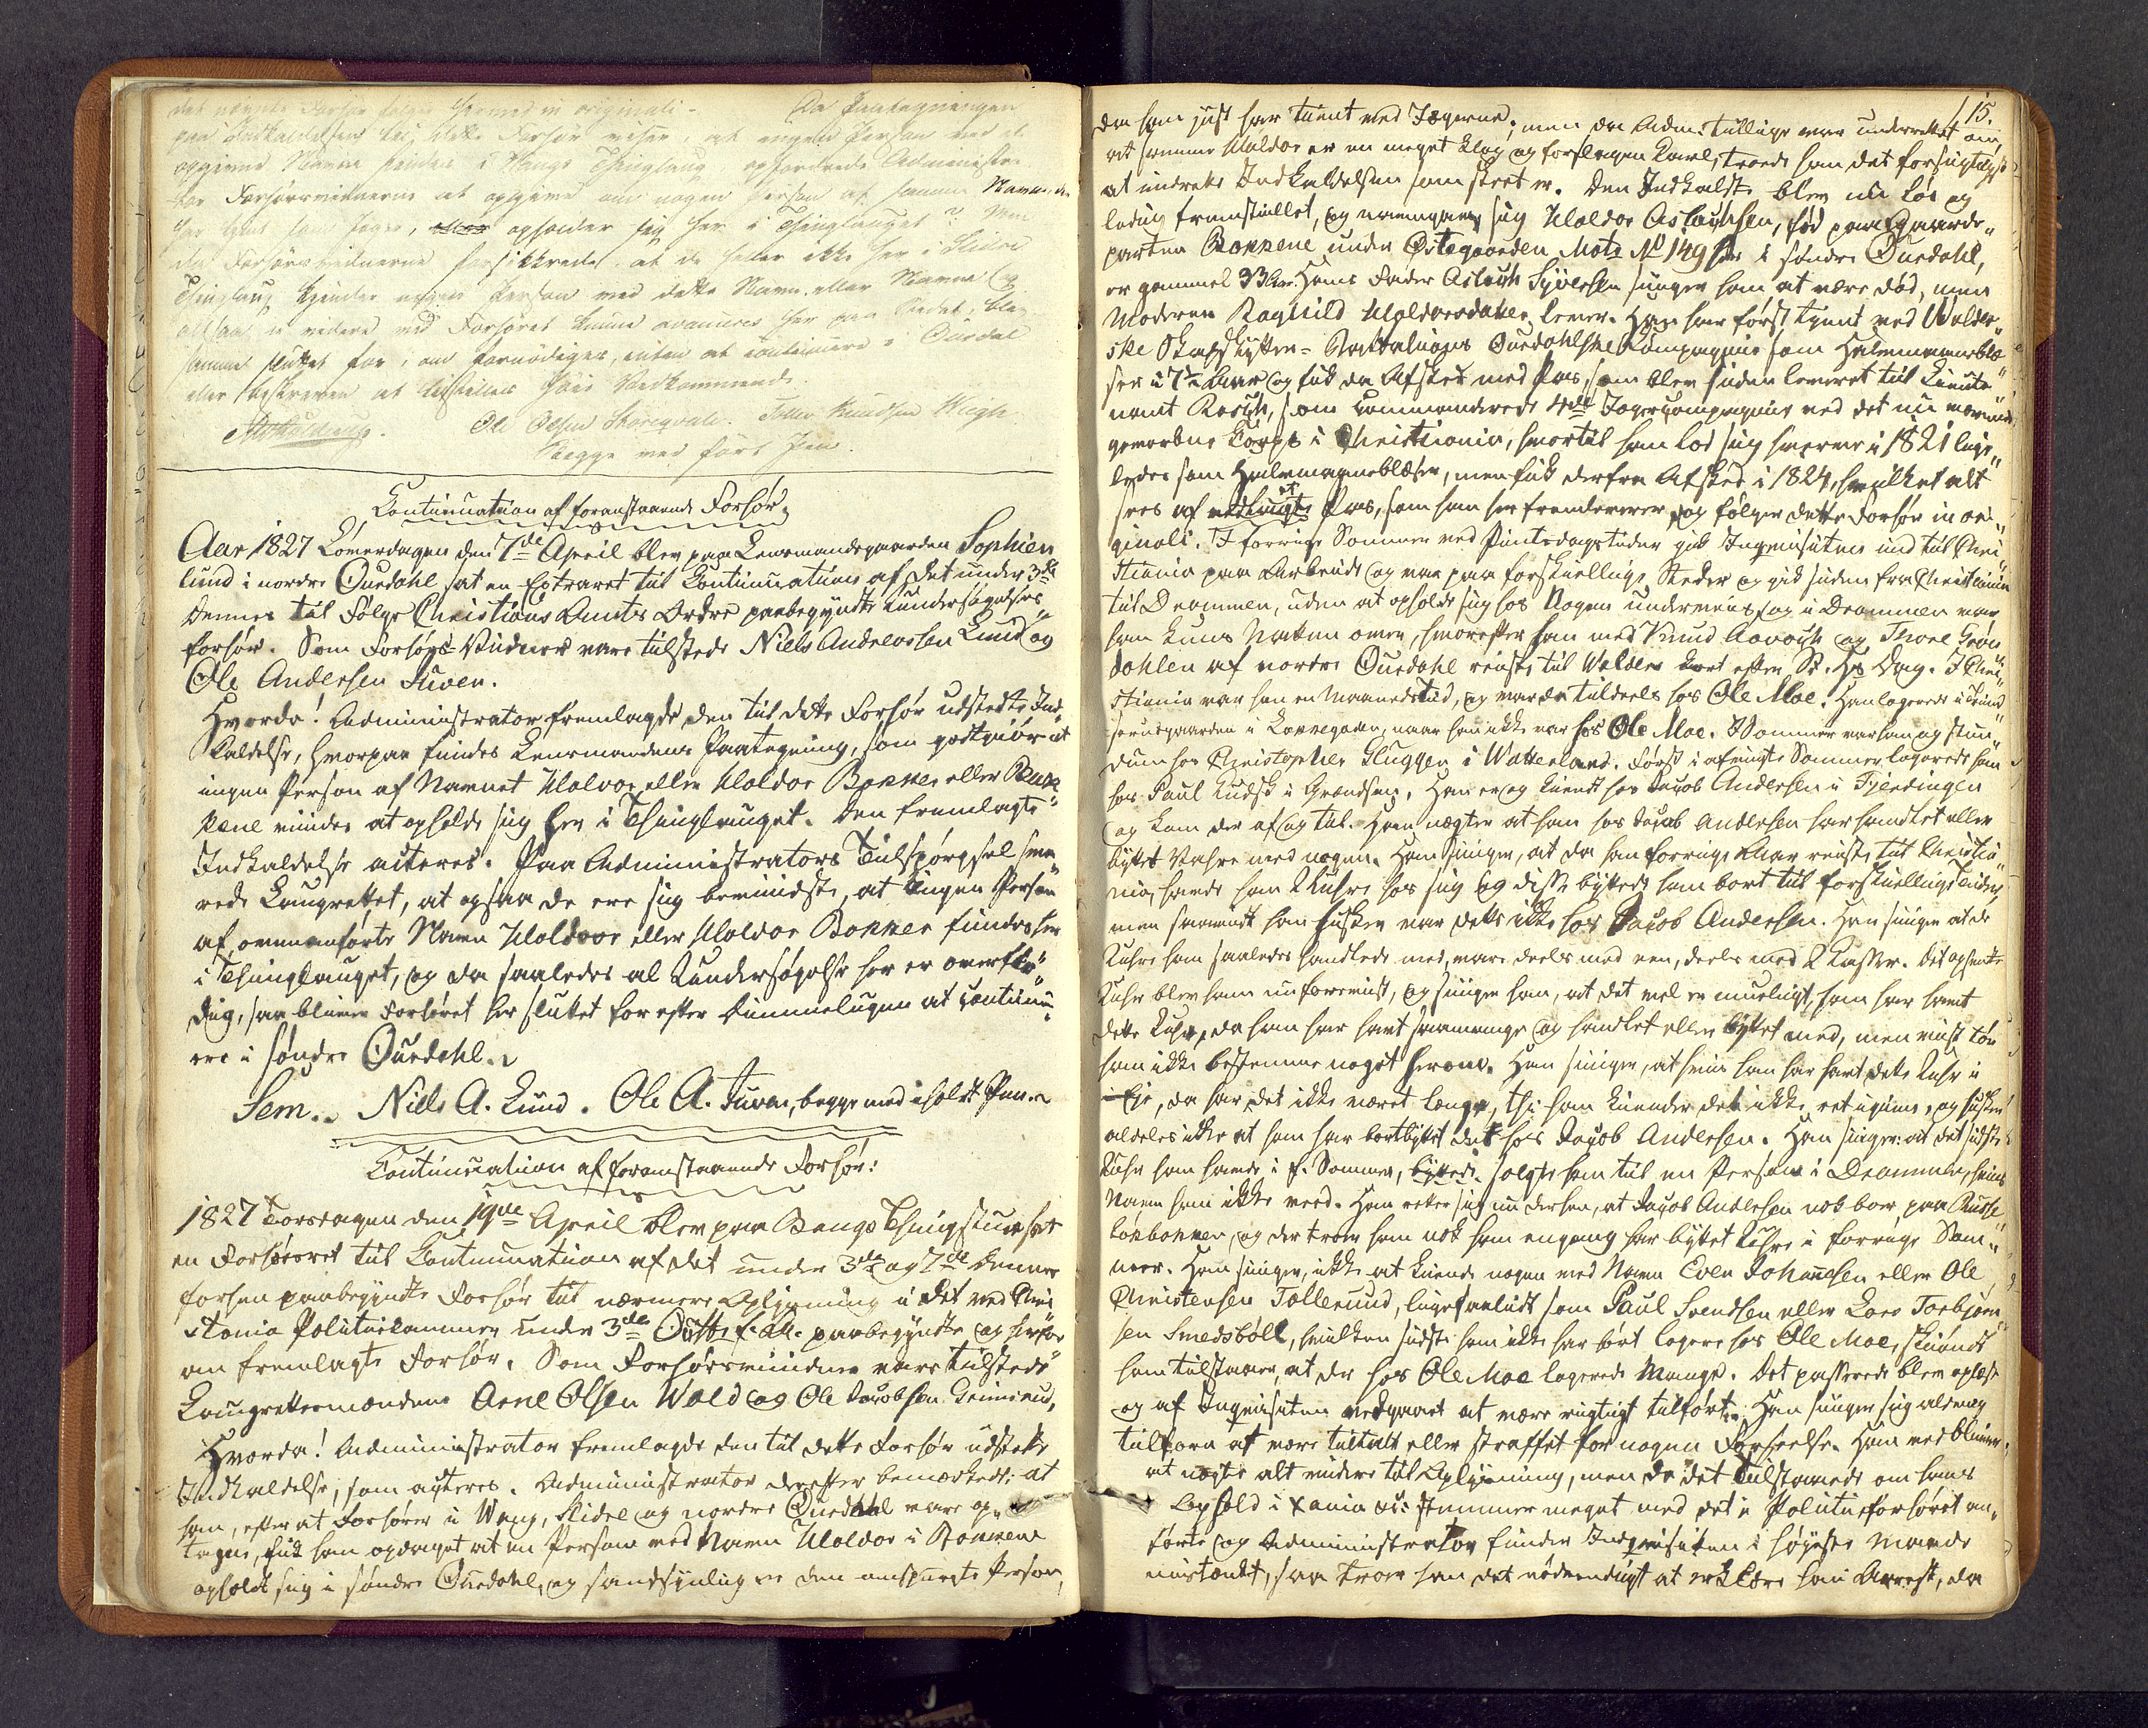 det Forhør følger hermed in originali - Da Paategningen
paa Indkaldelsen til dette Forhør viser, at ingen Person med et
opgivne Navn findes i Vangs Thinglaug opfordrede Administra-
tor Forhørsvidnerne at opgive om nogen Person af samme Navn, der
har tient som Jæger, opholder sig her i Thinglauget?
Forhørsvidnerne forsikkrede at de heller ikke her i Slidre
Thinglaug kiender nogen Person med dette Navn. eller Navne og
altsaa ei videre ved Forhøret kunne avanceres her paa Stedet, blev
samme sluttet for, om fornødiges, enten at continuere i Ourdal
eller beskreven at tilstilles høie Vedkommende.
Ole Olsen Knudsen
Begge med ført Pen.
Continuation af foranstaaende Forhør.
Aar 1827 Løverdagen den 7de April blev paa Lensmandsgaarden Sophien
lund i nordre Ourdahl sat en Extraret til Continuation af det under 3de
dennes til Følge Christians Amts Ordre paabegyndte Undersøgelses
forhør. Som Forhørs-Vidner vare tilstede Niels Andersen Lund og
Ole Andersen Juven.
Hvorda! Administrator fremlagde den til dette Forhør udstedte Ind-
kaldelse, hvorpaa findes Lensmandens Paategning, som godtgiør at
ingen Person af Navnet Halvor eller Haldor Bakken eller Bak
kene vides at opholde sig her i Thinglauget. Den fremlagte
Indkaldelse acteres. Paa Administrators Tilspørgsel sva
rede Laugrettet, at ogsaa de ere sig bevidste, at Ingen Person
af ovenanførte Navn Haldoor eller Haldor Bakken findes her
i Thinglauget, og da saaledes al Undersøgelse her er overflø
dig, saa bliver Forhøret her sluttet for efter Omstændighederne at continu
ere i søndre Ourdahl.
Sem. Niels A. Lund. Ole A. Juven, begge med iholdt Pen.
Continuation af foranstaaende Forhør:
1827 Torsdagen den 19de April blev paa Bangs Thingstue sat
en Forhørsret til Continuation af det under 3de og 7de dennes
forhen paabegyndte Forhør til nærmere Oplysning i det ved Chri
stania Politiekammer under 3de Octbr. f. A. paabegyndte og herfor
an fremlagte Forhør. Som Forhørsvidner vare tilstede
Laugrettesmændene Arne Olsen Wold og Ole Jacobsen
Hvorda! Administrator fremlagde den til dette Forhør udstedte
Indkaldelse, som acteres. Administrator derefter bemærkede: at
han, efter at Forhører i Vang, Slidre og nordre Ourdahl vare op
tagne, fik han opdaget at en Person ved Navn Haldor i Bakkene
opholdt sig i søndre Ourdahl, og sandsynlig er den omspurgte Person,
15.
da han just har tient ved Jægerne; men da Adm: tillige var underrettet om,
at samme Haldor er en meget klog og forslagen Karl, troede han det forsigtigst
at indrette Indkaldelsen som skeet er. Den Indkaldte blev nu løs og
ledig fremstillet, og navngav sig Haldor Aslachsen, født paa Gaarde-
parten Bakkene under Østegaarden Matr No 149 her i søndre Ourdahl,
er gammel 33 Aar. Hans Fader Aslach Syversen siger han at være død, men
Moderen Ragnild Haldorsdatter lever. Han har først tient ved Valder
ske Skarpskytter-Battalions Ourdahlske Kompagnie som Halvmaaneblæ
ser i 7 1/2 Aar og fik da Afsked med Pas, som blev siden leveret til Lieute
nant Rosch, som commanderede 4de Jægercompagnie ved det nu værende
gevorbne Corps i Christiania, hvortil han lod sig hverve i 1821 lige-
ledes som Halvmaaneblæser, men fik derfra Afsked i 1824, hvilket alt
sees af vedlagte Pas, som han her fremleverer og følger dette Forhør in ori
ginali. I forrige Sommer ved Pintsdagstider gik Inquisiten ind til Chri
stiania paa Arbeide og var paa forskiellige Steder og gik siden fra Christiania
til Drammen, uden at opholde sig hos Nogen underveis og i Drammen var
han kuns Natten over, hvorefter han med Knud og Thore Grøn
dahlen af nordre Ourdahl reiste til Walders kort efter St. Hs Dag. I Chri
stiania var han en Maanedstid, og var da tildeels hos Ole Moe. Han logerede i
gaarden i, naar han ikke var hos Ole Moe. I Sommer var han og stun
dum hos Christopher Gluggen i Watterland. Først i afvigte Sommer logerede han
hos Paul Ludsk i Grændsen. Han er og kiendt hos Jacob Andersen i Fjerdingen
og kom der af og til. Han nægter at han hos Jacob Andersen har handlet eller
byttet Uhre med nogen. Han siger, at da han forrige Aar reiste til Christia
nia, havde han 2 Uhre hos sig og disse byttede han bort til forskiellige Tider,
men saavidt han husker var dette ikke hos Jacob Andersen. Han siger at de
Uhre han saaledes handlede med, vare deels med een, deels med 2 Kasser. Det opsendte
Uhr blev ham nu foreviist, og siger han, at det vel er mueligt, han har havt
dette Uhr, da han har havt saamange og handlet eller byttet med, men vist tør
han ikke bestemme noget herom. Han siger, at hvis han har havt dette Uhr i
Eje, da har det ikke været længe, thi han kiender det ikke ret igien, og husker
aldeles ikke at han har bortbyttet det hos Jacob Andersen. Han siger: at det sidste
Uhr han havde i f. Sommer, byttede solgte han til en Person i Drammen, hvis
Navn han ikke veed. Han retter sig nu derhen, at Jacob Andersen nok boer paa Russe
løkbakken, og der troer han nok han engang har byttet Uhre i forrige Som-
mer. Han siger, ikke at kiende nogen med Navn Even Johannesen eller Ole
Christensen Tollerud, ligesaalidt som Paul Svendsen eller Lars Torbjørn
sen Smedsbøll, hvilken sidste han ikke har hørt logere hos Ole Moe, skiøndt
han tilstaaer, at der hos Ole Moe logerede Mange. Det passerede blev oplæst
og af Inqvisiten vedgaaet at være rigtigt tilført. Han siger sig aldrig
tilforn at være tiltalt eller straffet for nogen Forseelse. Han vedbliver
at nægte alt videre til Oplysning, men da det Tilstaaede om hans
Ophold i Xania &c: stemmer meget med det i Politieforhøret an
førte og Administrator finder Inqvisiten i høyeste Maade
mistænkt, saa troer han det nødvendigt at erklære ham Arrest, da